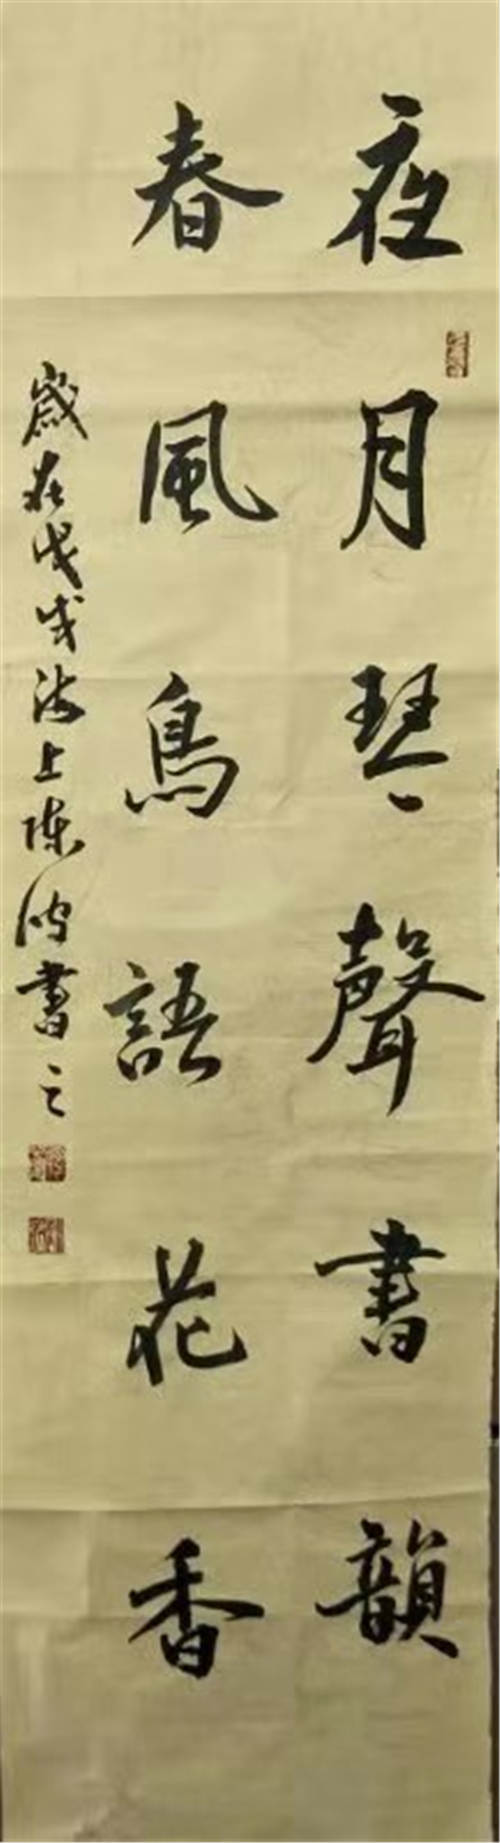 夜月琴聲書韻
春風鳥語花香
歲在戊戌海上陳波書之